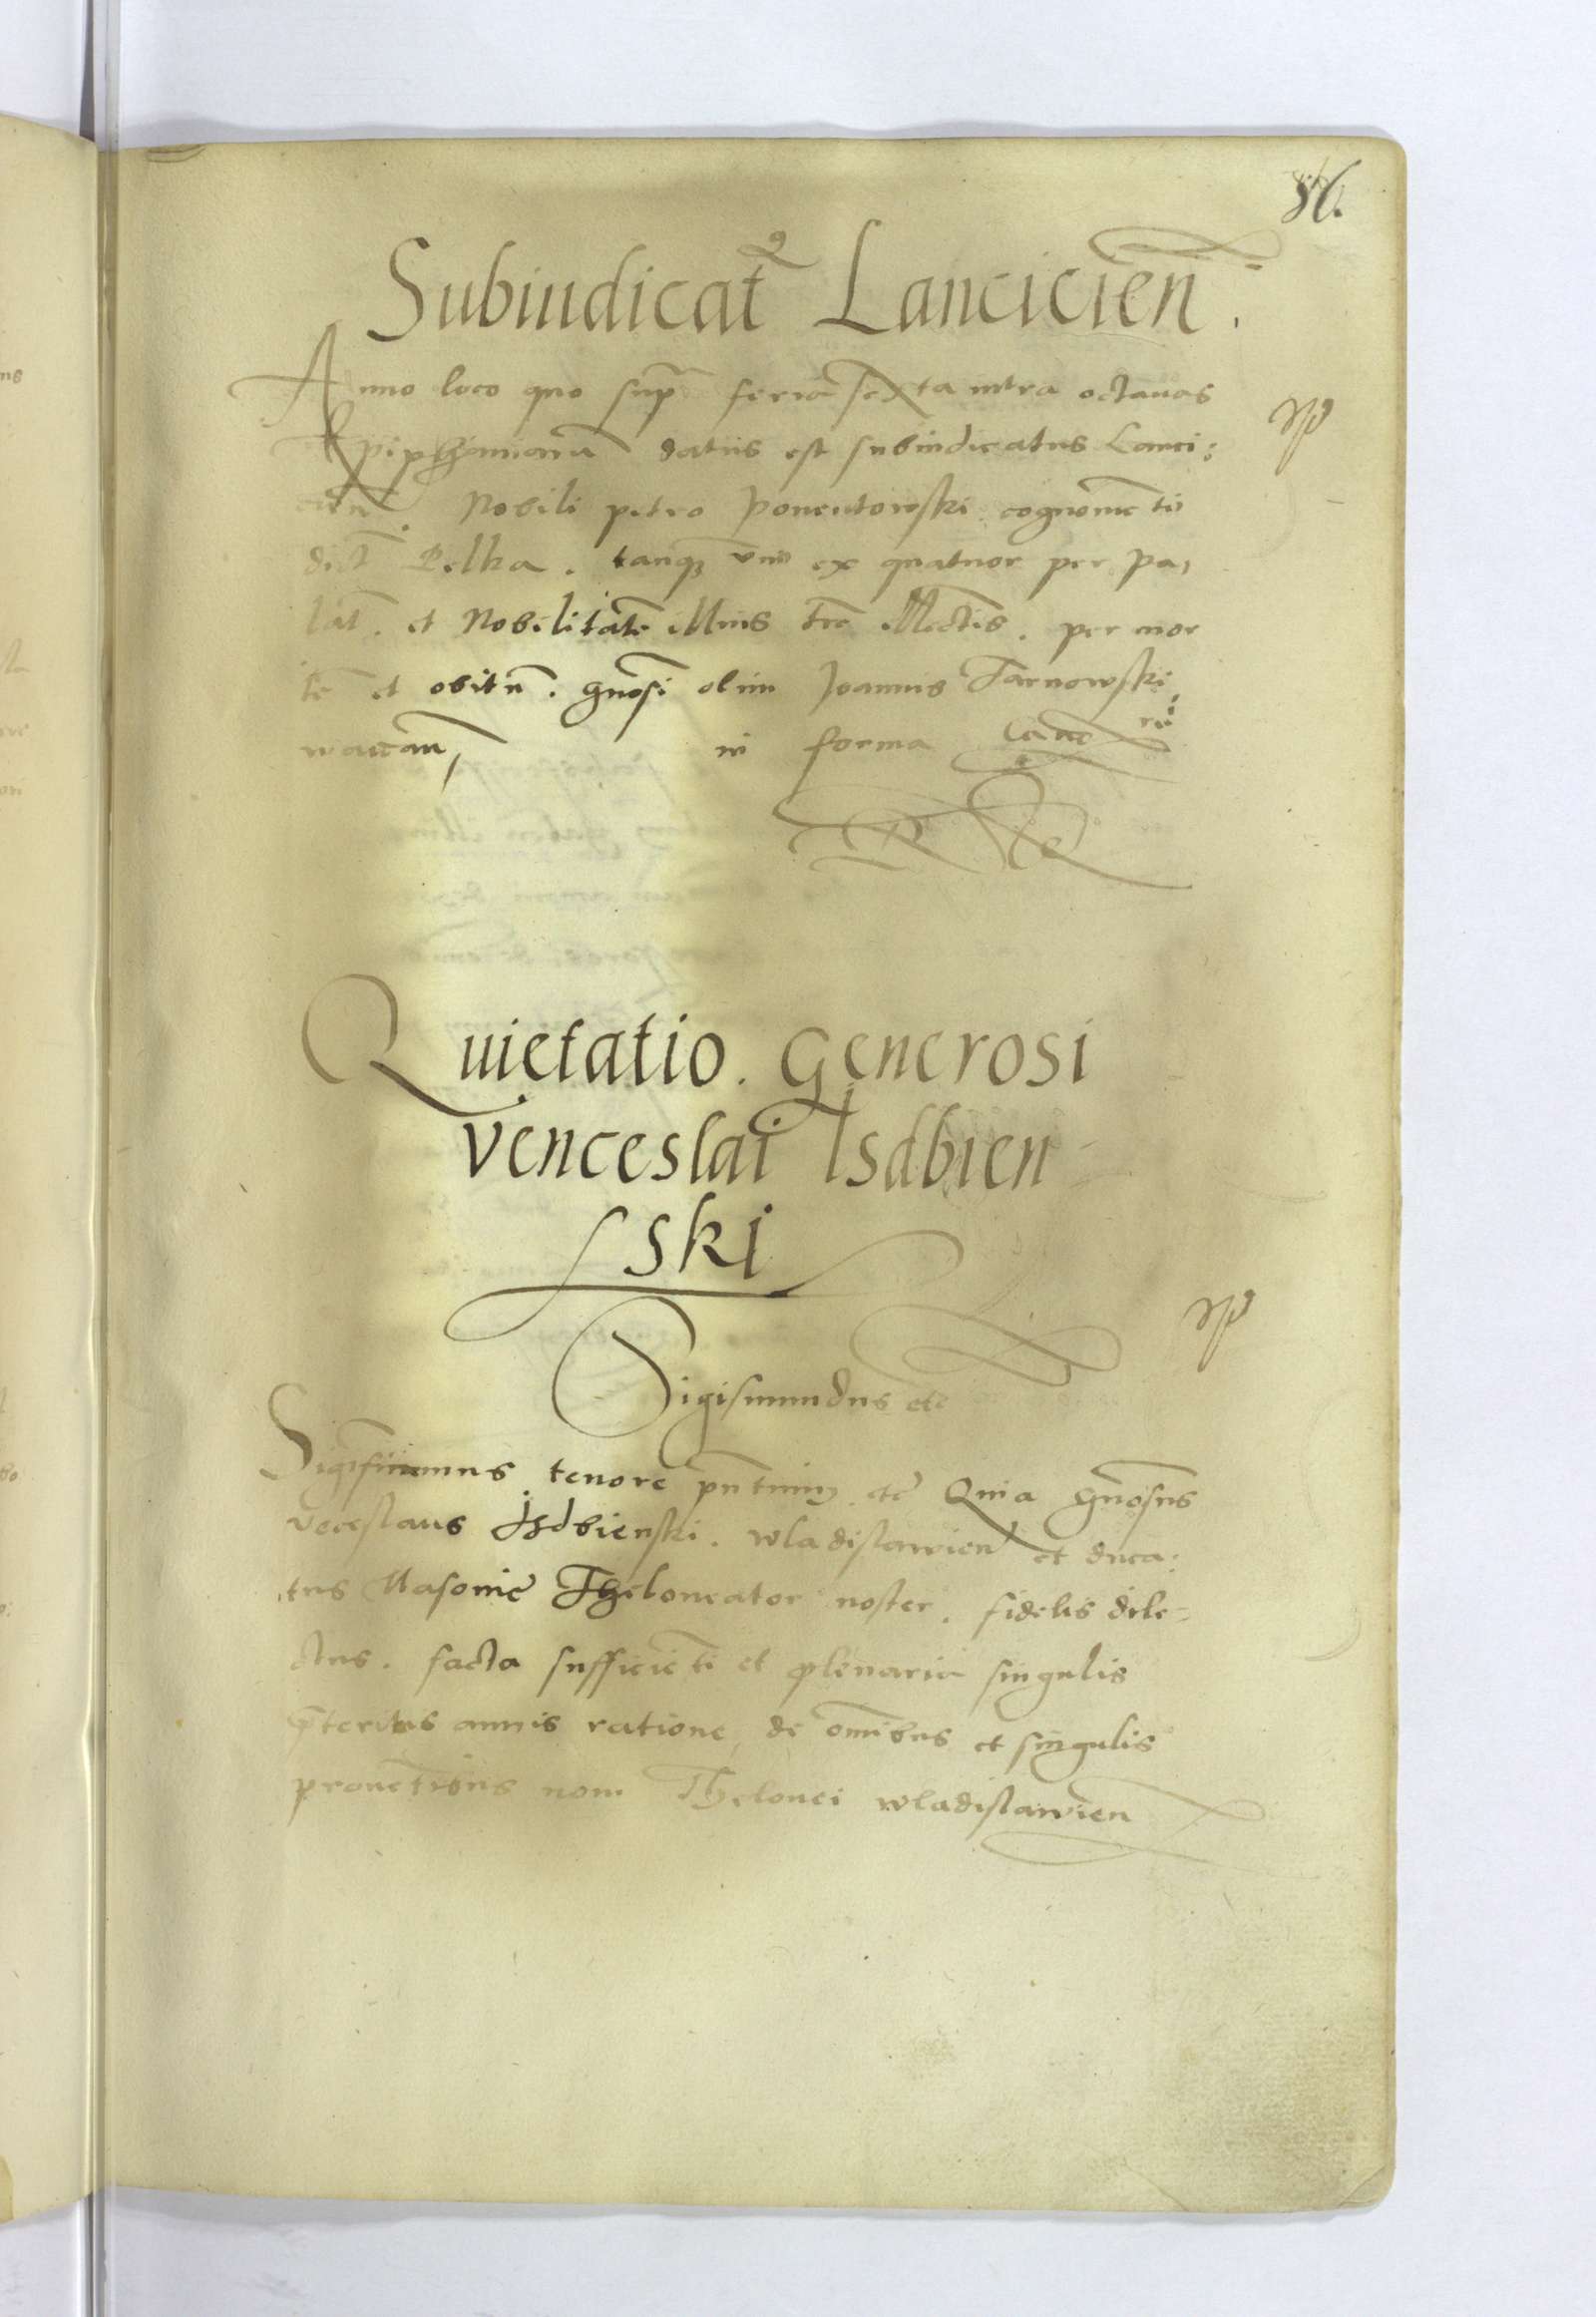 86.
Subiudicatꝰ Lancicień.
Anno loco quo supra feria sexta intra octauas
Epiphaniarū datus est subiudicatus Lanci:
cień. Nobili petro Ponentowski cognomēto
dict̄ Pelka. tanqꝫ vni ex quatuor per pa,
lat̄. et Nobilitatē illius tre ellectis. per mor
tē et obitū. gnosi olim Joannis Tarnowski,
vacan, in forma Canc
Quietatio. Generosi
Venceslai Isdbien
ski
Sigismundus etc
Significamus tenore pntium etc Quia gnosus
Veceslaus Isdbienski. wladislawien et duca:
tus Masouie Theloneator noster. fidelis dile-
ctus. facta sufficiēti et plenaria singulis
pteritis annis ratione, de omibus et singulis
prouetibus Thelonei wladislawien